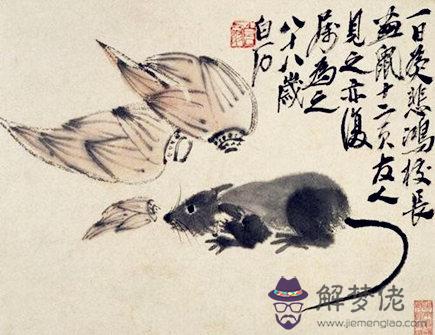 一日悲鴻校長
畫鼠十二頁友人
見之亦復
屬為之
八十八歲
白石
解梦佬
http://www.jiemenglao.com/